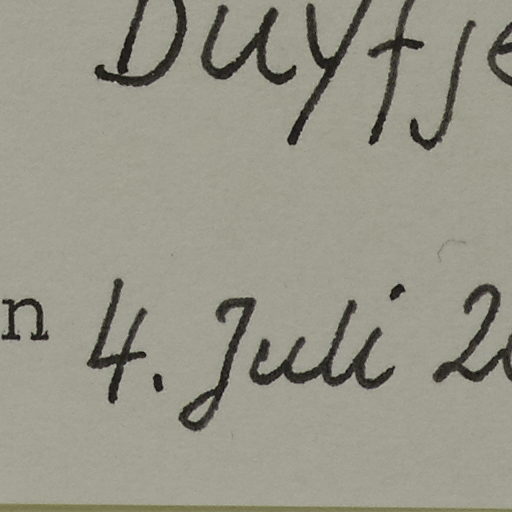 Duyfje
n 4. Juli 20